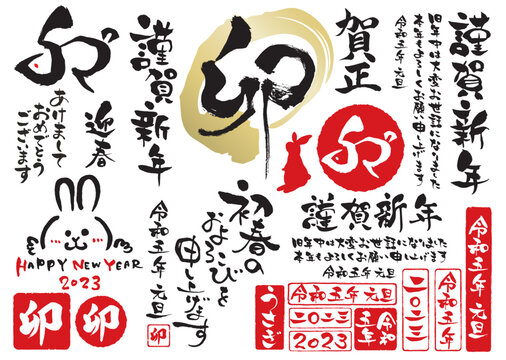 謹賀新年
旧年中は大変お世話になりました
本年もよろしくお願い申し上げます
令和五年 元旦
賀正
卯
謹賀新年
迎春
あけまして
おめでとう
ございます
謹賀新年
旧年中は大変お世話になりました
本年もよろしくお願い申し上げます
令和五年 元旦
初春の
およろこびを
申し上げます
令和五年 元旦
卯
HAPPY NEW YEAR
2023
卯
卯
令和五年 元旦
二〇二三
令和五年 元旦
二〇二三
2023
令和
五年
うさぎ